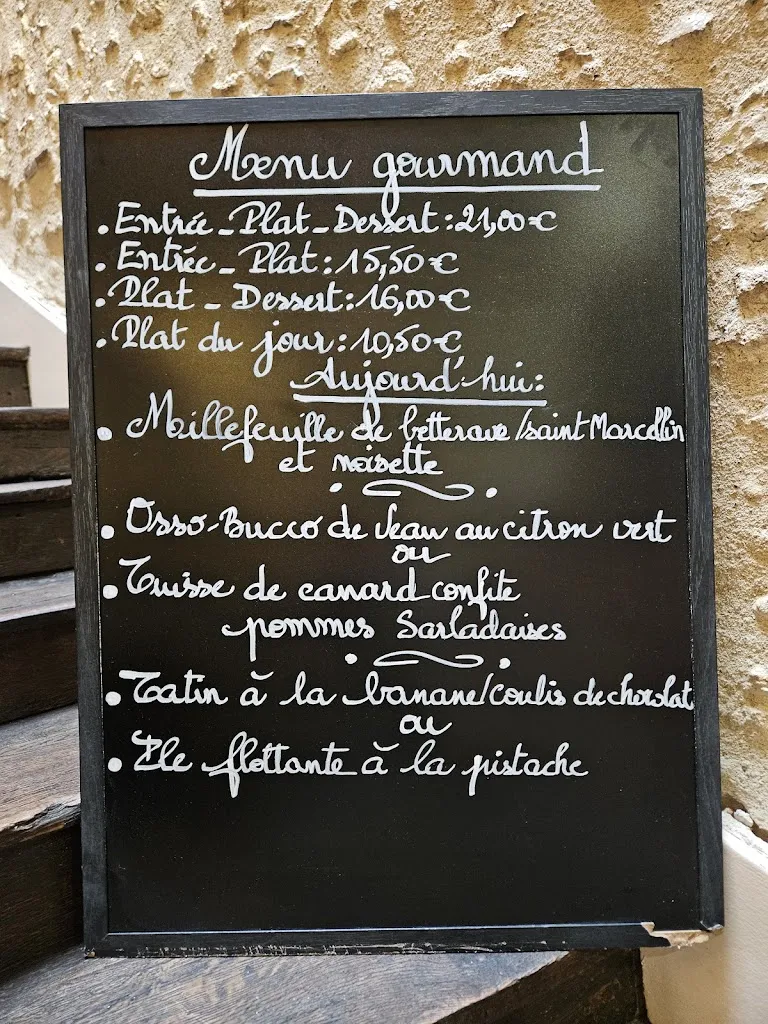 Menu gourmand
. Entrée_Plat_Dessert : 21,00€
. Entrée_ Plat : 15,50€
. Plat _ Dessert : 16,00€
. Plat du jour : 10,50€
Aujourd'hui :
• Millefeuille de betterave/saint Marcellin
et noisette
• Osso-Bucco de Veau au citron vert
ou
• Cuisse de canard confite
pommes Sarladaises
• Tatin à la banane/coulis de chocolat
ou
• Ile flottante à la pistache